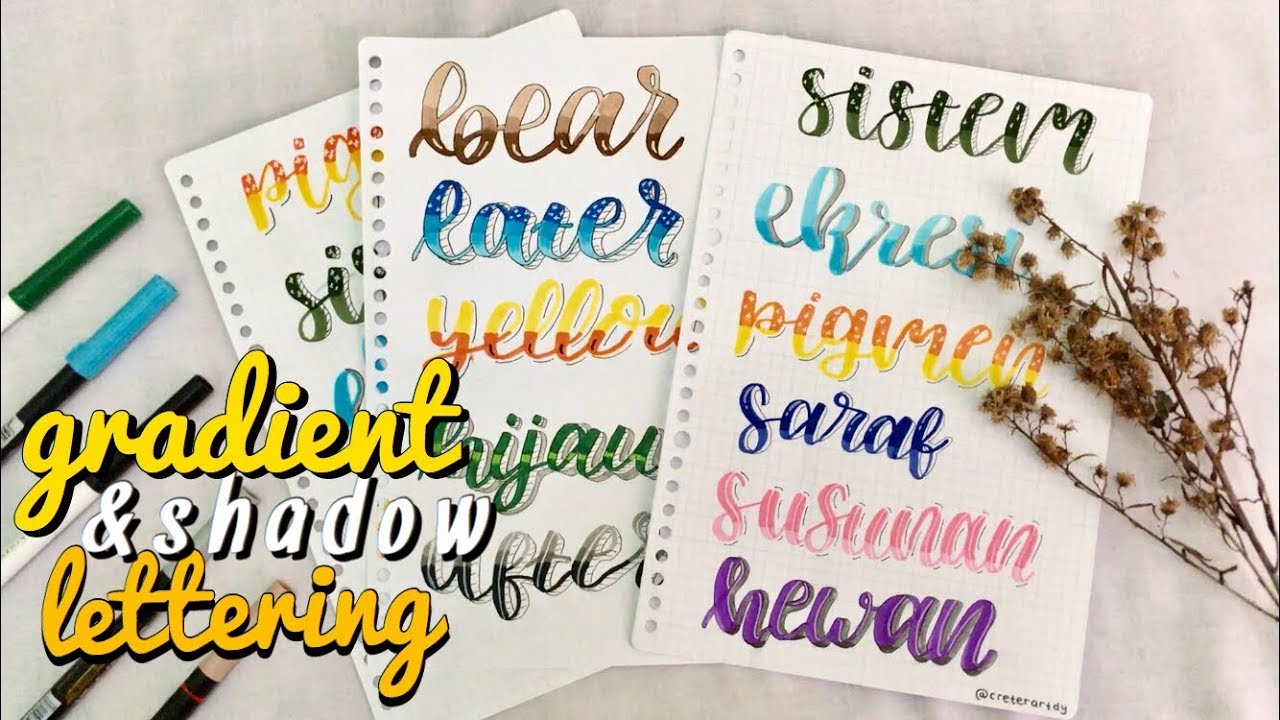 gradient
&shadow
lettering
pig
si
bear
later
yellow
hijau
after
sistem
ekresi
pigmen
saraf
susunan
hewan
@creterartdy